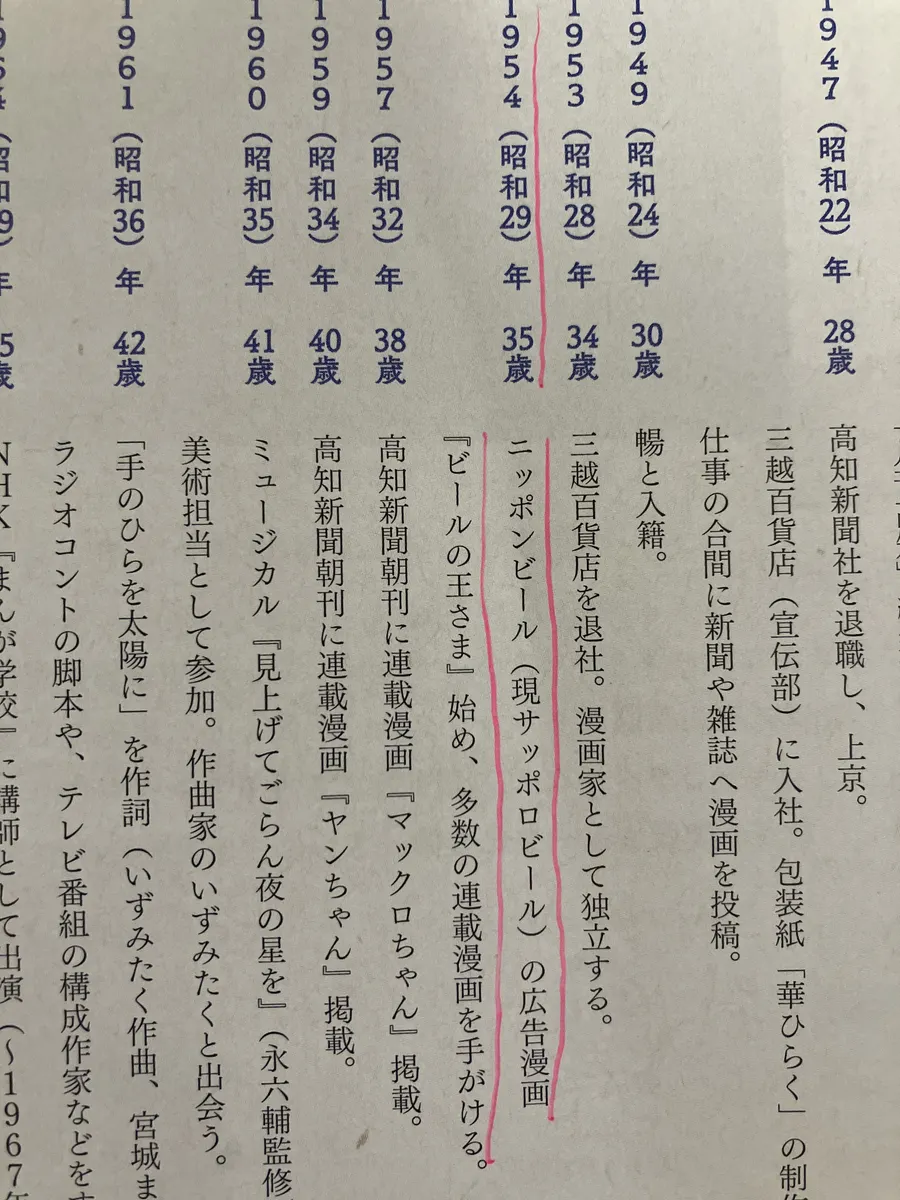 1947（昭和22）年 28歳
高知新聞社を退職し、上京。
三越百貨店（宣伝部）に入社。包装紙「華ひらく」の制作
仕事の合間に新聞や雑誌へ漫画を投稿。
1949（昭和24）年 30歳
暢と入籍。
1953（昭和28）年 34歳
三越百貨店を退社。漫画家として独立する。
1954（昭和29）年 35歳
ニッポンビール（現サッポロビール）の広告漫画
『ビールの王さま』始め、多数の連載漫画を手がける。
1957（昭和32）年 38歳
高知新聞朝刊に連載漫画『マックロちゃん』掲載。
1959（昭和34）年 40歳
高知新聞朝刊に連載漫画『ヤンちゃん』掲載。
1960（昭和35）年 41歳
ミュージカル『見上げてごらん夜の星を』（永六輔監修
美術担当として参加。作曲家のいずみたくと出会う。
1961（昭和36）年 42歳
「手のひらを太陽に」を作詞（いずみたく作曲、宮城ま
ラジオコントの脚本や、テレビ番組の構成作家などをす
NHK『まんが学校』に講師として出演（〜1967年